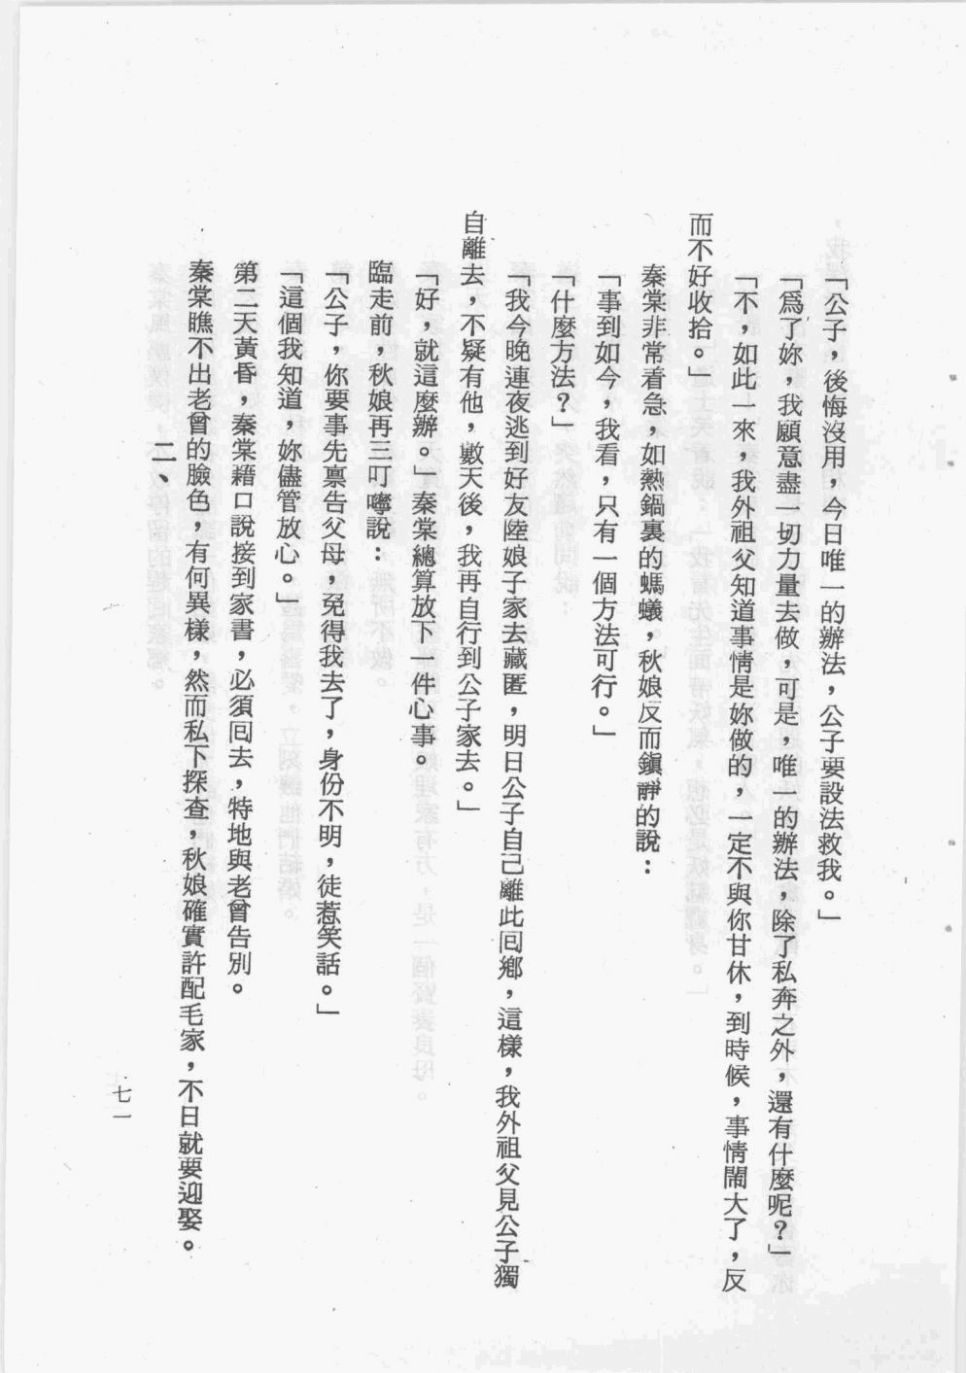 「公子，後悔沒用，今日唯一的辦法，公子要設法救我。」
「爲了妳，我願意盡一切力量去做，可是，唯一的辦法，除了私奔之外，還有什麼呢？」
「不，如此一來，我外祖父知道事情是妳做的，一定不與你甘休，到時候，事情鬧大了，反
而不好收拾。」
秦棠非常着急，如熱鍋裏的螞蟻，秋娘反而鎭靜的說：
「事到如今，我看，只有一個方法可行。」
「什麼方法？」
「我今晚連夜逃到好友陸娘子家去藏匿，明日公子自己離此囘鄉，這樣，我外祖父見公子獨
自離去，不疑有他，數天後，我再自行到公子家去。」
「好，就這麼辦。」秦棠總算放下一件心事。
臨走前，秋娘再三叮嚀說：
「公子，你要事先禀告父母，免得我去了，身份不明，徒惹笑話。」
「這個我知道，妳儘管放心。」
第二天黃昏，秦棠藉口說接到家書，必須囘去，特地與老曾告別。
秦棠瞧不出老曾的臉色，有何異樣，然而私下探查，秋娘確實許配毛家，不日就要迎娶。
二、
七一